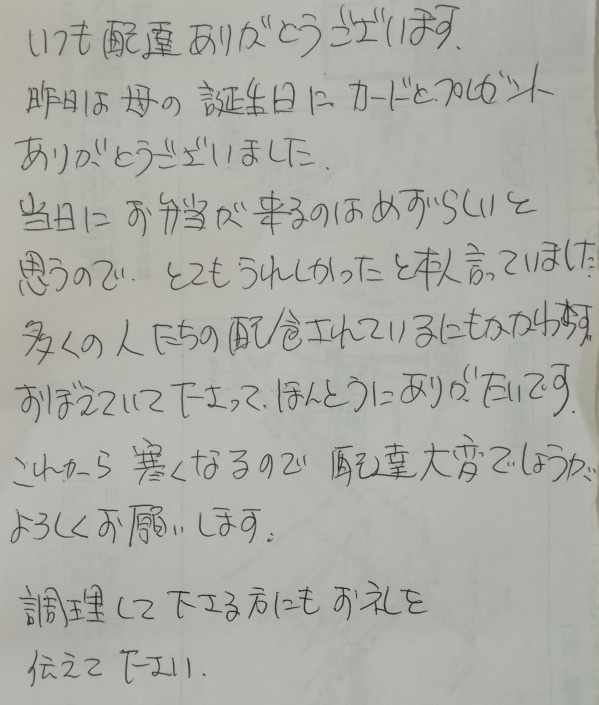 いつも配達ありがとうございます.
昨日は母の誕生日にカードとプレゼント
ありがとうございました.
当日にお弁当が来るのはめずらしいと
思うので、とてもうれしかったと本人言っていました.
多くの人たちの配食されているにもかかわらず
おぼえていて下さって、ほんとうにありがたいです.
これから寒くなるので配達大変でしょうが、
よろしくお願いします。
調理して下さる方にもお礼を
伝えて下さい.